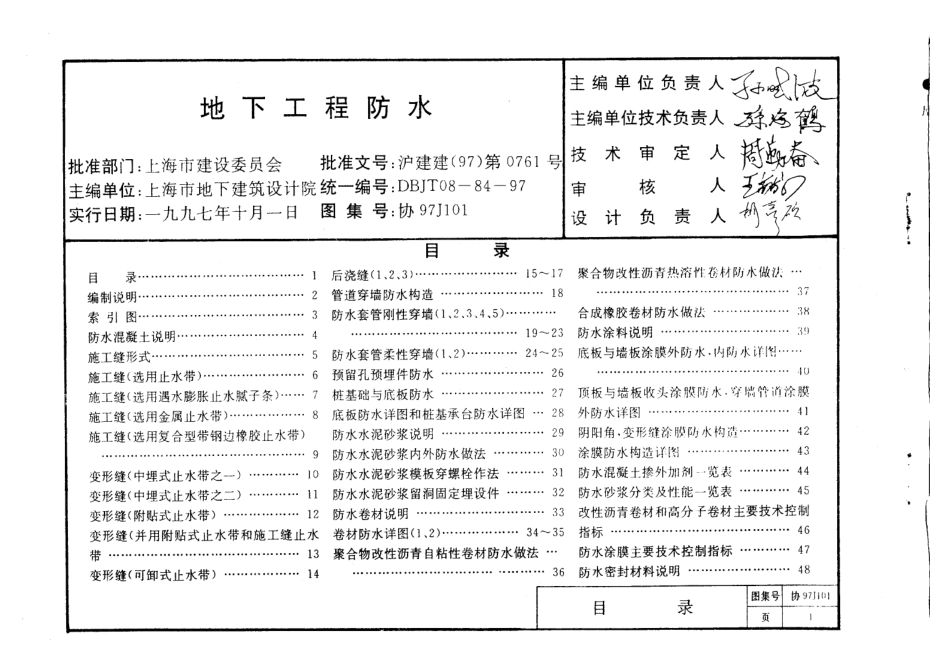 地下工程防水
批准部门:上海市建设委员会
批准文号:沪建建(97)第0761号
主编单位:上海市地下建筑设计院
统一编号:DBJT08-84-97
实行日期:一九九七年十月一日
图集号:协97J101
主编单位负责人
主编单位技术负责人
技术审定人
审核人
设计负责人
目录
目录…………………………… 1
编制说明…………………………… 2
索引图…………………………… 3
防水混凝土说明…………………… 4
施工缝形式………………………… 5
施工缝(选用止水带)……………… 6
施工缝(选用遇水膨胀止水腻子条)…… 7
施工缝(选用金属止水带)…………… 8
施工缝(选用复合型带钢边橡胶止水带)
…………………………………… 9
变形缝(中埋式止水带之一)………… 10
变形缝(中埋式止水带之二)………… 11
变形缝(附贴式止水带)…………… 12
变形缝(并用附贴式止水带和施工缝止水
带………………………………… 13
变形缝(可卸式止水带)…………… 14
后浇缝(1、2、3)………………… 15~17
管道穿墙防水构造………………… 18
防水套管刚性穿墙(1、2、3、4、5)…………
………………………… 19~23
防水套管柔性穿墙(1、2)………… 24~25
预留孔预埋件防水………………… 26
桩基础与底板防水………………… 27
底板防水详图和桩基承台防水详图 … 28
防水水泥砂浆说明………………… 29
防水水泥砂浆内外防水做法……… 30
防水水泥砂浆模板穿螺栓作法……… 31
防水水泥砂浆留洞固定埋设件……… 32
防水卷材说明……………………… 33
卷材防水详图(1、2)…………… 34~35
聚合物改性沥青自粘性卷材防水做法 …
………………………………… 36
聚合物改性沥青热溶性卷材防水做法 …
………………………………… 37
合成橡胶卷材防水做法…………… 38
防水涂料说明……………………… 39
底板与墙板涂膜外防水、内防水详图……
………………………………… 40
顶板与墙板收头涂膜防水、穿墙管道涂膜
外防水详图………………………… 41
阴阳角、变形缝涂膜防水构造……… 42
涂膜防水构造详图………………… 43
防水混凝土掺外加剂一览表……… 44
防水砂浆分类及性能一览表……… 45
改性沥青卷材和高分子卷材主要技术控制
指标……………………………… 46
防水涂膜主要技术控制指标……… 47
防水密封材料说明………………… 48
目录
图集号
协97J101
页
1